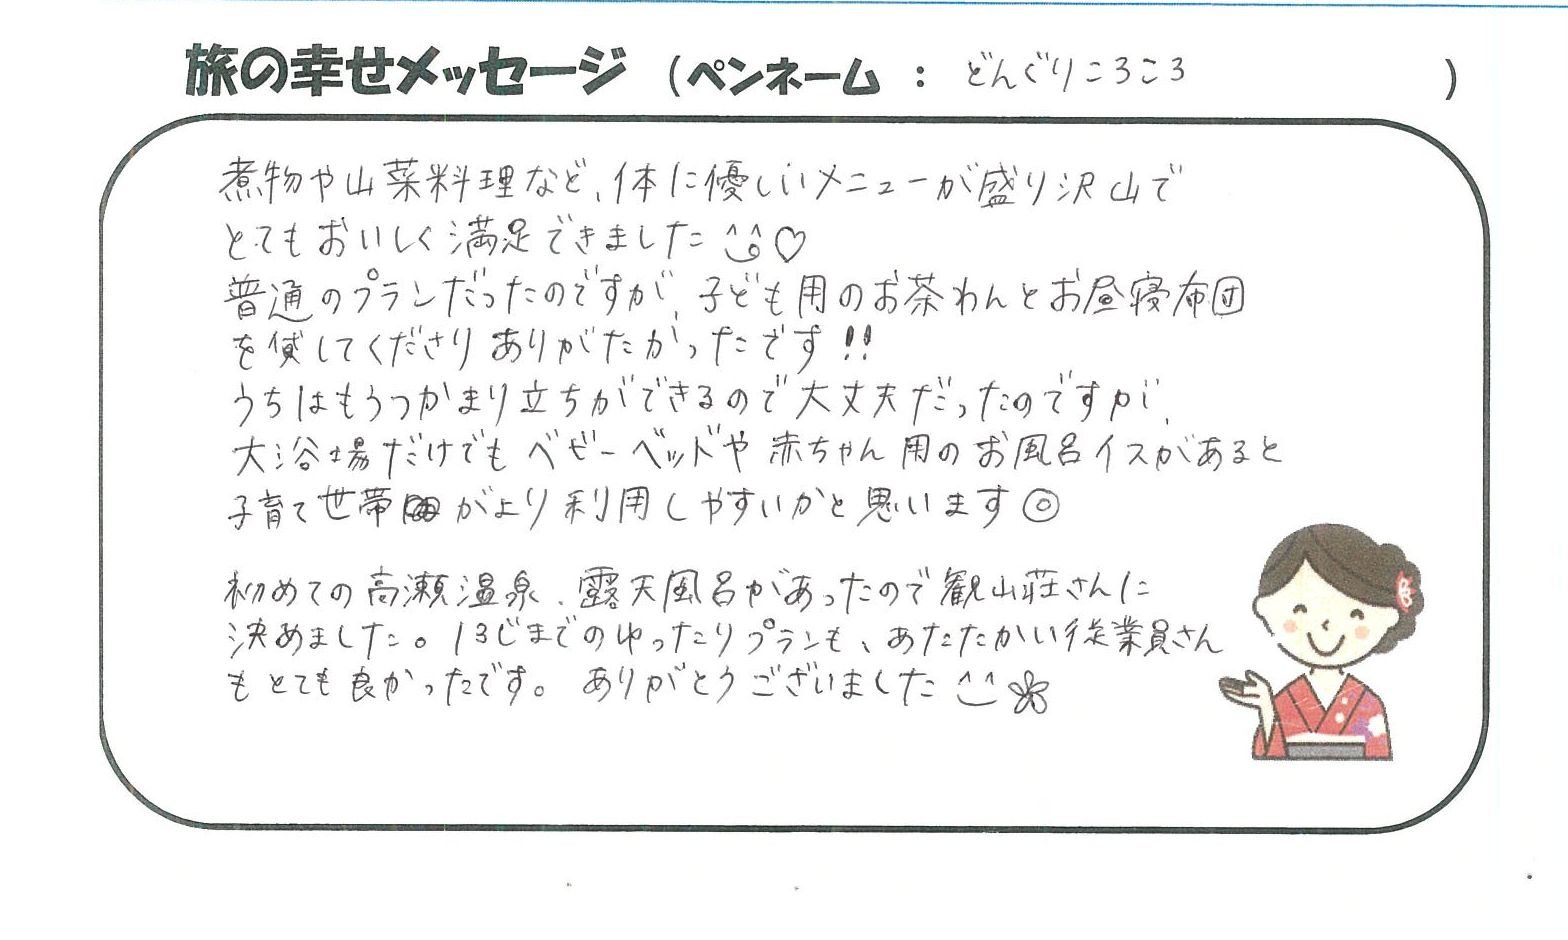 旅の幸せメッセージ (ペンネーム : どんぐりころころ )
煮物や山菜料理など、体に優しいメニューが盛り沢山で
とてもおいしく満足できました ^^♡
普通のプランだったのですが、子ども用のお茶わんとお昼寝布団
を貸してくださりありがたかったです!!
うちはもうつかまり立ちができるので大丈夫だったのですが、
大浴場だけでもベビーベッドや赤ちゃん用のお風呂イスがあると
子育て世帯がより利用しやすいかと思います◎
初めての高瀬温泉、露天風呂があったので観山荘さんに
決めました。13じまでのゆったりプランも、あたたかい従業員さん
もとても良かったです。ありがとうございました ^^